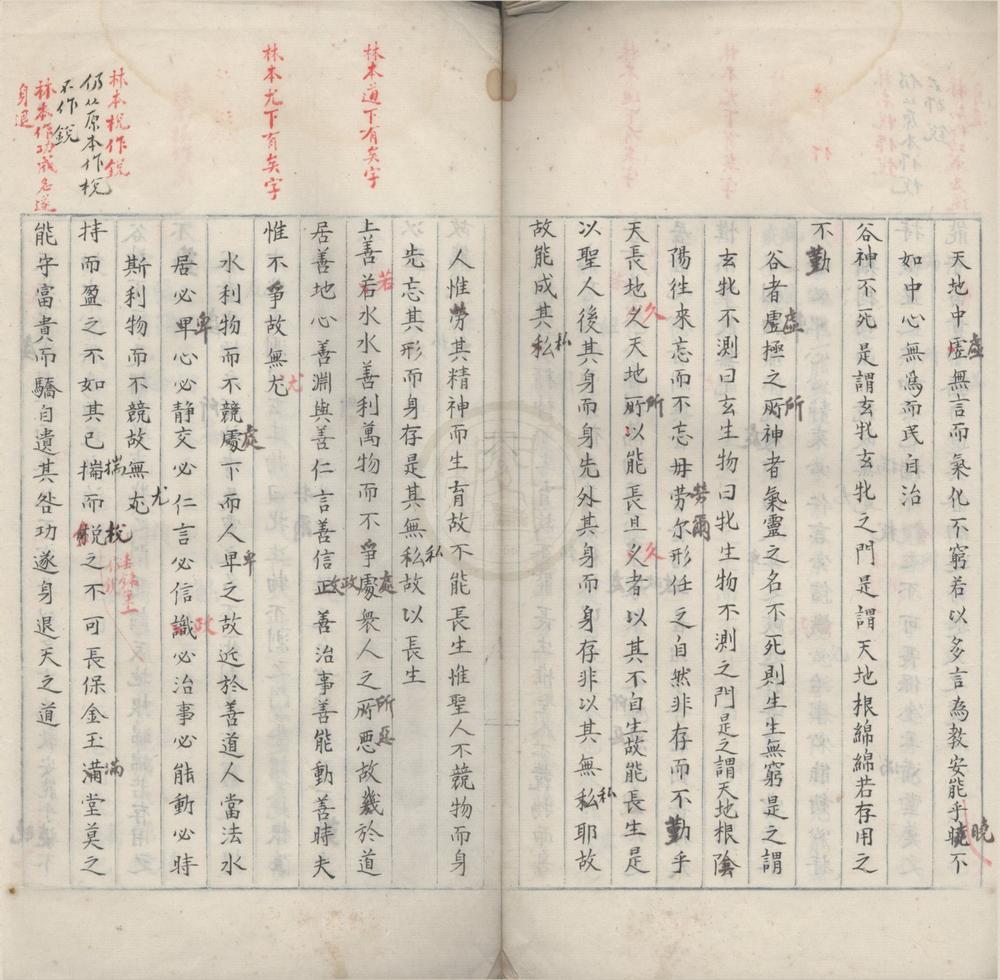 天地中虛無言而氣化不窮若以多言為教安能乎曉不
虛
晚
如中心無為而民自治
谷神不死是謂玄牝玄牝之門是謂天地根綿綿若存用之
不勤
谷者虛極之所神者氣靈之名不死則生生無窮是之謂
虛
所
玄牝不測曰玄生物曰牝生物不測之門是之謂天地根陰
陽往來忘而不忘毋勞尔形任之自然非存而不勤乎
勞爾
天長地久天地所以能長且久者以其不自生故能長生是
久
所
久
以聖人後其身而身先外其身而身存非以其無私耶故
私
故能成其私
私
人惟勞其精神而生育故不能長生惟聖人不競物而身
先忘其形而身存是其無私故以長生
私
林本道下有矣字
上善若水水善利萬物而不爭處衆人之所惡故幾於道
若
處
所惡
居善地心善淵與善仁言善信政善治事善能動善時夫
政
林本尤下有矣字
惟不爭故無尤
尤
水利物而不競處下而人卑之故近於善道人當法水
處
卑
居必卑心必静交必仁言必信識必治事必能動必時
卑
政
斯利物而不競故無尤
尤
林本梲作鋭
仍從原本作梲
不作鋭
持而盈之不如其已揣而梲之不可長保金玉滿堂莫之
揣
梲
滿
林本作功成名遂
身退
能守富貴而驕自遺其咎功遂身退天之道